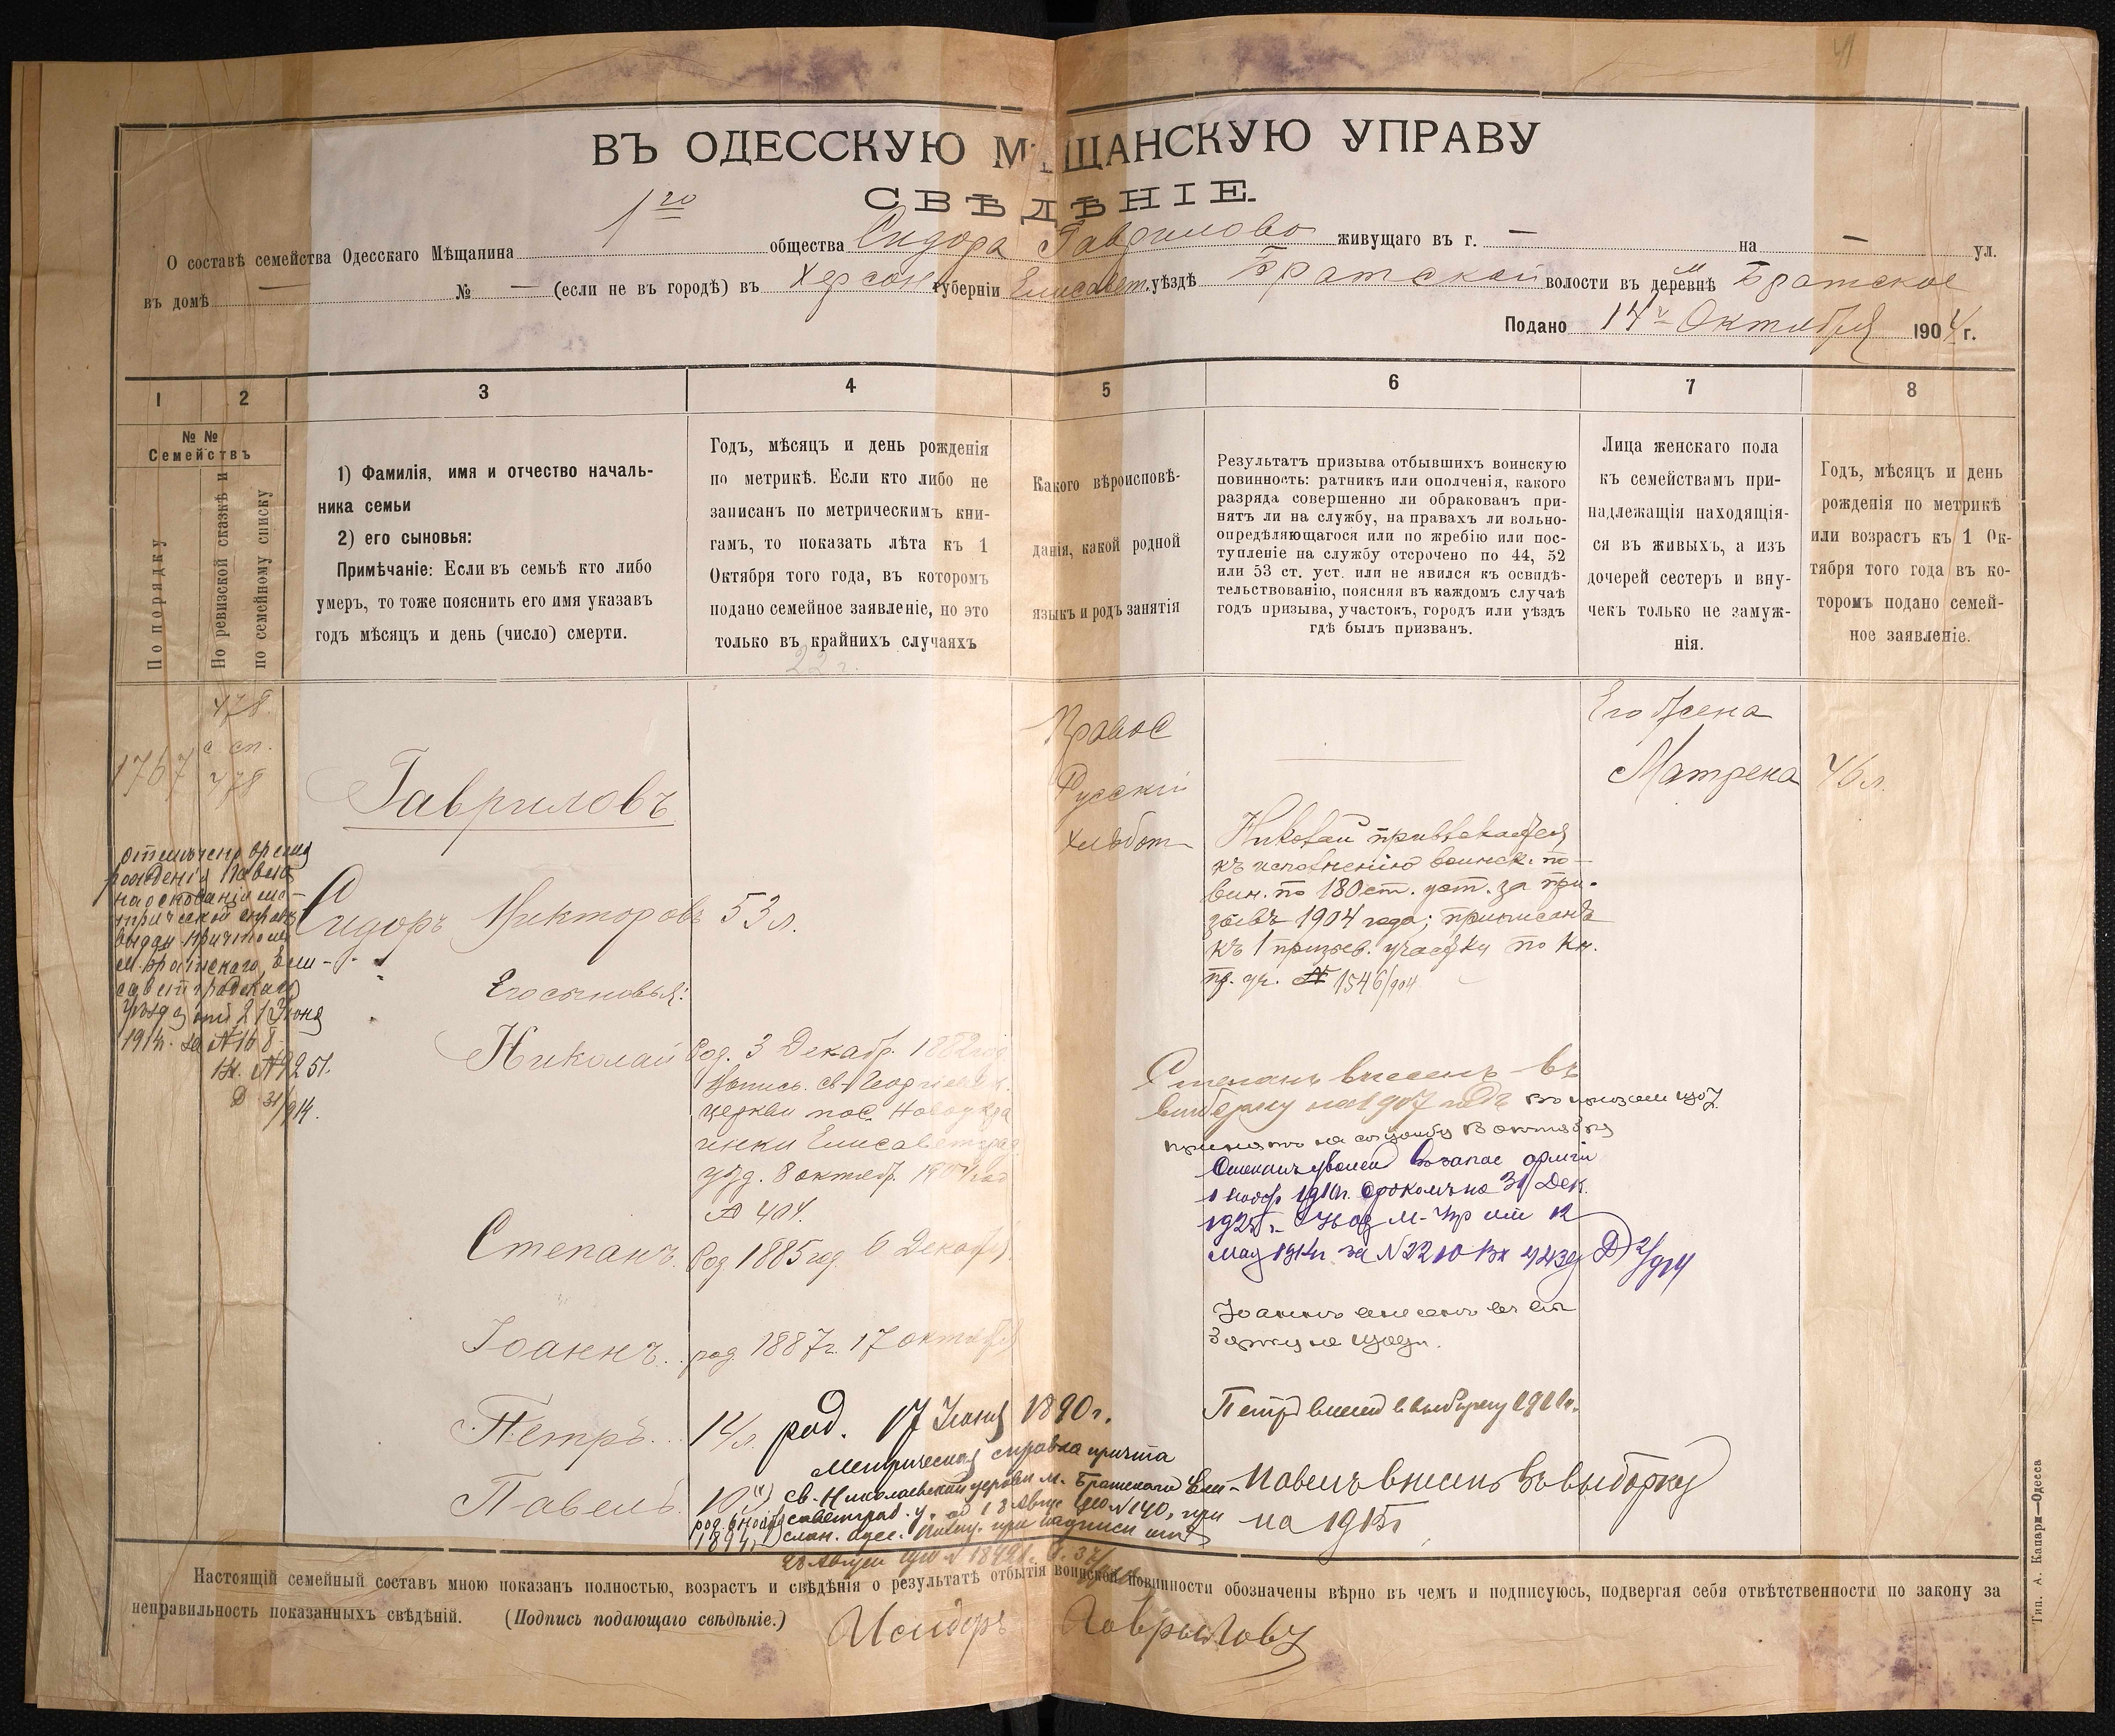 ВЪ ОДЕССКУЮ М ЩАНСКУЮ УПРАВУ
СВѢДѢНІЕ.
О составѣ семейства Одесскаго Мѣщанина 1го общества Сидора Гаврилова живущаго въ г. — на — ул.
въ домѣ — № — (если не въ городѣ) въ Херсон губерніи Елисавет. уѣздѣ Братской волости въ деревнѣ м Братское
Подано 14го Октября 1904 г.
1 2 3 4 5 6 7 8
№ №
Семействъ
По порядку
По ревизской сказкѣ и
по семейному списку
1) Фамилія, имя и отчество началь-
ника семьи
2) его сыновья:
Примѣчаніе: Если въ семьѣ кто либо
умеръ, то тоже пояснить его имя указавъ
годъ мѣсяцъ и день (число) смерти.
Годъ, мѣсяцъ и день рожденія
по метрикѣ. Если кто либо не
записанъ по метрическимъ кни-
гамъ, то показать лѣта къ 1
Октября того года, въ которомъ
подано семейное заявленіе, но это
только въ крайнихъ случаяхъ
22 г.
Какого вѣроисповѣ-
данія, какой родной
языкъ и родъ занятія
Результатъ призыва отбывшихъ воинскую
повинность: ратникъ или ополченія, какого
разряда совершенно ли обракованъ при-
нятъ ли на службу, на правахъ ли вольно-
опредѣляющагося или по жребію или пос-
тупленіе на службу отсрочено по 44, 52
или 53 ст. уст. или не явился къ освидѣ-
тельствованію, поясняя въ каждомъ случаѣ
годъ призыва, участокъ, городъ или уѣздъ
гдѣ былъ призванъ.
Лица женскаго пола
къ семействамъ при-
надлежащія находящія-
ся въ живыхъ, а изъ
дочерей сестеръ и вну-
чекъ только не замуж-
нія.
Годъ, мѣсяцъ и день
рожденія по метрикѣ
или возрастъ къ 1 Ок-
тября того года въ ко-
торомъ подано семей-
ное заявленіе.
1767
478
с сп.
478
отмѣчено время
рожденія Павла
на основаніи ме-
трической справки
выдан причтомъ
м. Братскаго, Ели-
саветградскаго
уѣзда отъ 21 Іюня
1914г. за № 168
Вх. № 9251.
Д 31/914.
Гавриловъ
Сидоръ Викторовъ 53 л.
Его сыновья:
Николай Род. 3 Декабр. 1882 год
Выпись. св. Георгіевск.
церкви пос. Новоукра
инки Елисаветград
уѣзд. 8 октяб. 1904 год
№ 404.
Степанъ. Род 1885 год. 6 Декабр.
Іоаннъ. род. 1887г. 17 октября
Петръ. 14 л. род. 17 Іюня 1890 г.
Метрическая справка причта
св. Николаевской церкви м. Братскаго Ели-
саветград. у. от 13 Авгус 1910 № 140, при
слан. Одес. при надписи отъ
28 Август 1910 № 18421.
Павелъ. 10
род. 6 Нояб
1894
Правос
Русскій
Хлѣбоп
Николай привлекается
къ исполненію воинск. по-
вин. по 180 ст. уст. за при-
зывъ 1904 года; приписанъ
къ 1 призыв. участку по Кн.
пр. уч. № 1546/904
Степанъ внесенъ въ
выборку на 1907 годъ въ призыв 1907
принятъ на службу 13 октября
Степанъ уволен въ запас арміи
1 нояб 1910г. срокомъ на 31 Дек.
1925г. М. Упр отъ 12
Мая 1914г за № 2210 Вх 4239 Д 2/914
Іоаннъ внесенъ въ вы
борку на 1909г.
Петръ внесен в выборку 1911г.
Павелъ внесенъ въ выборку
на 1915г
Его Жена
Матрена 46 л.
Настоящій семейный составъ мною показанъ полностью, возрастъ и свѣдѣнія о результатѣ отбытія воинской повинности обозначены вѣрно въ чемъ и подписуюсь, подвергая себя отвѣтственности по закону за
неправильность показанныхъ свѣдѣній. (Подпись подающаго свѣдѣніе.) Исидоръ Гавриловъ
Тип. А. Капари—Одесса